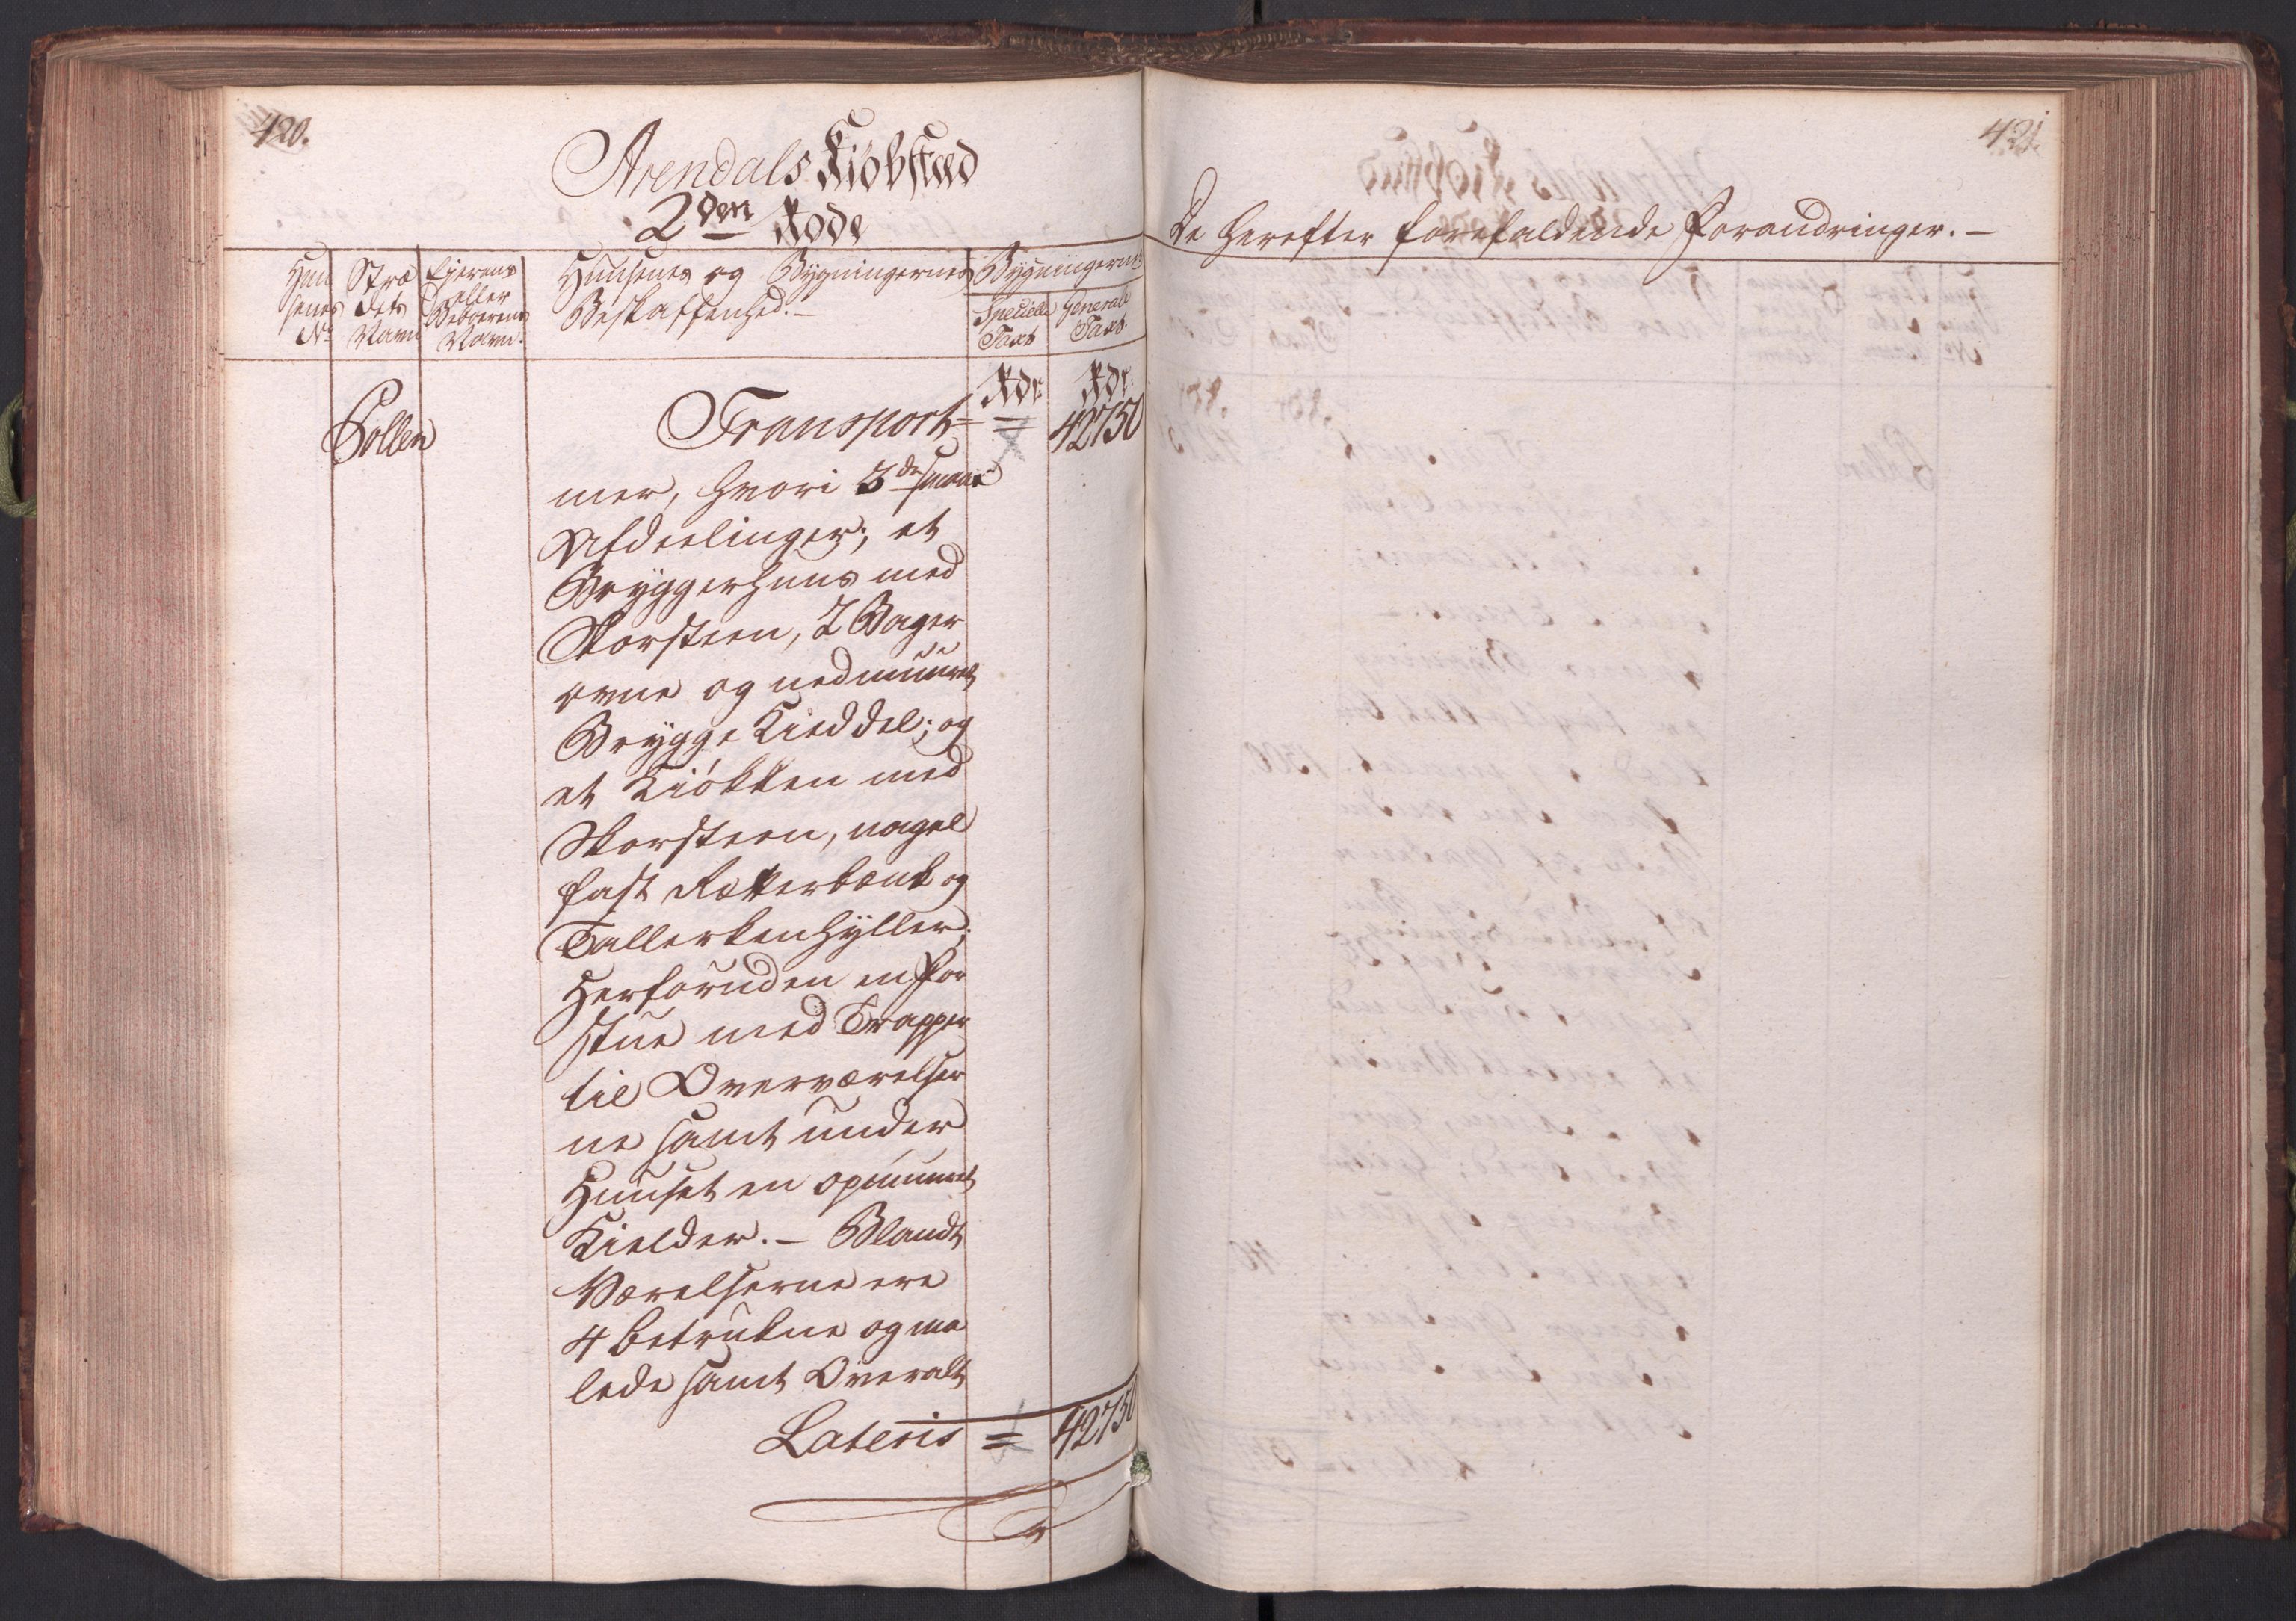 420.
Arendals Kiöbstæd
2den Rode
Huu
senes
No
Stræ
dets
Navn
Ejerens
eller
Beboerens
Navn.
Huusenes og Bygningernes
Beskaffenhed. –
Bygningernes
Specielle
Taxt
Generale
Taxt.
Rdr. Rdr.
Pollen
Transport = = 42750
mer, hvori 3de smaae
Afdeelinger; et
Bryggerhuus med
Skorsteen, 2 Bager
ovne og nedmuuret
Brygge Kieddel; og
et Kiökken med
Skorsteen, nagel
fast Rækerbænk og
Tallerkenhyller;
Herforuden en For
stue med Trapper
til Overværelser
ne samt under
Huuset en opmuuret
Kielder. – Blandt
Værelserne ere
4 betrukne og ma
lede samt Overalt
Lateris = 42750
421.
De herefter forefaldende Forandringer. –